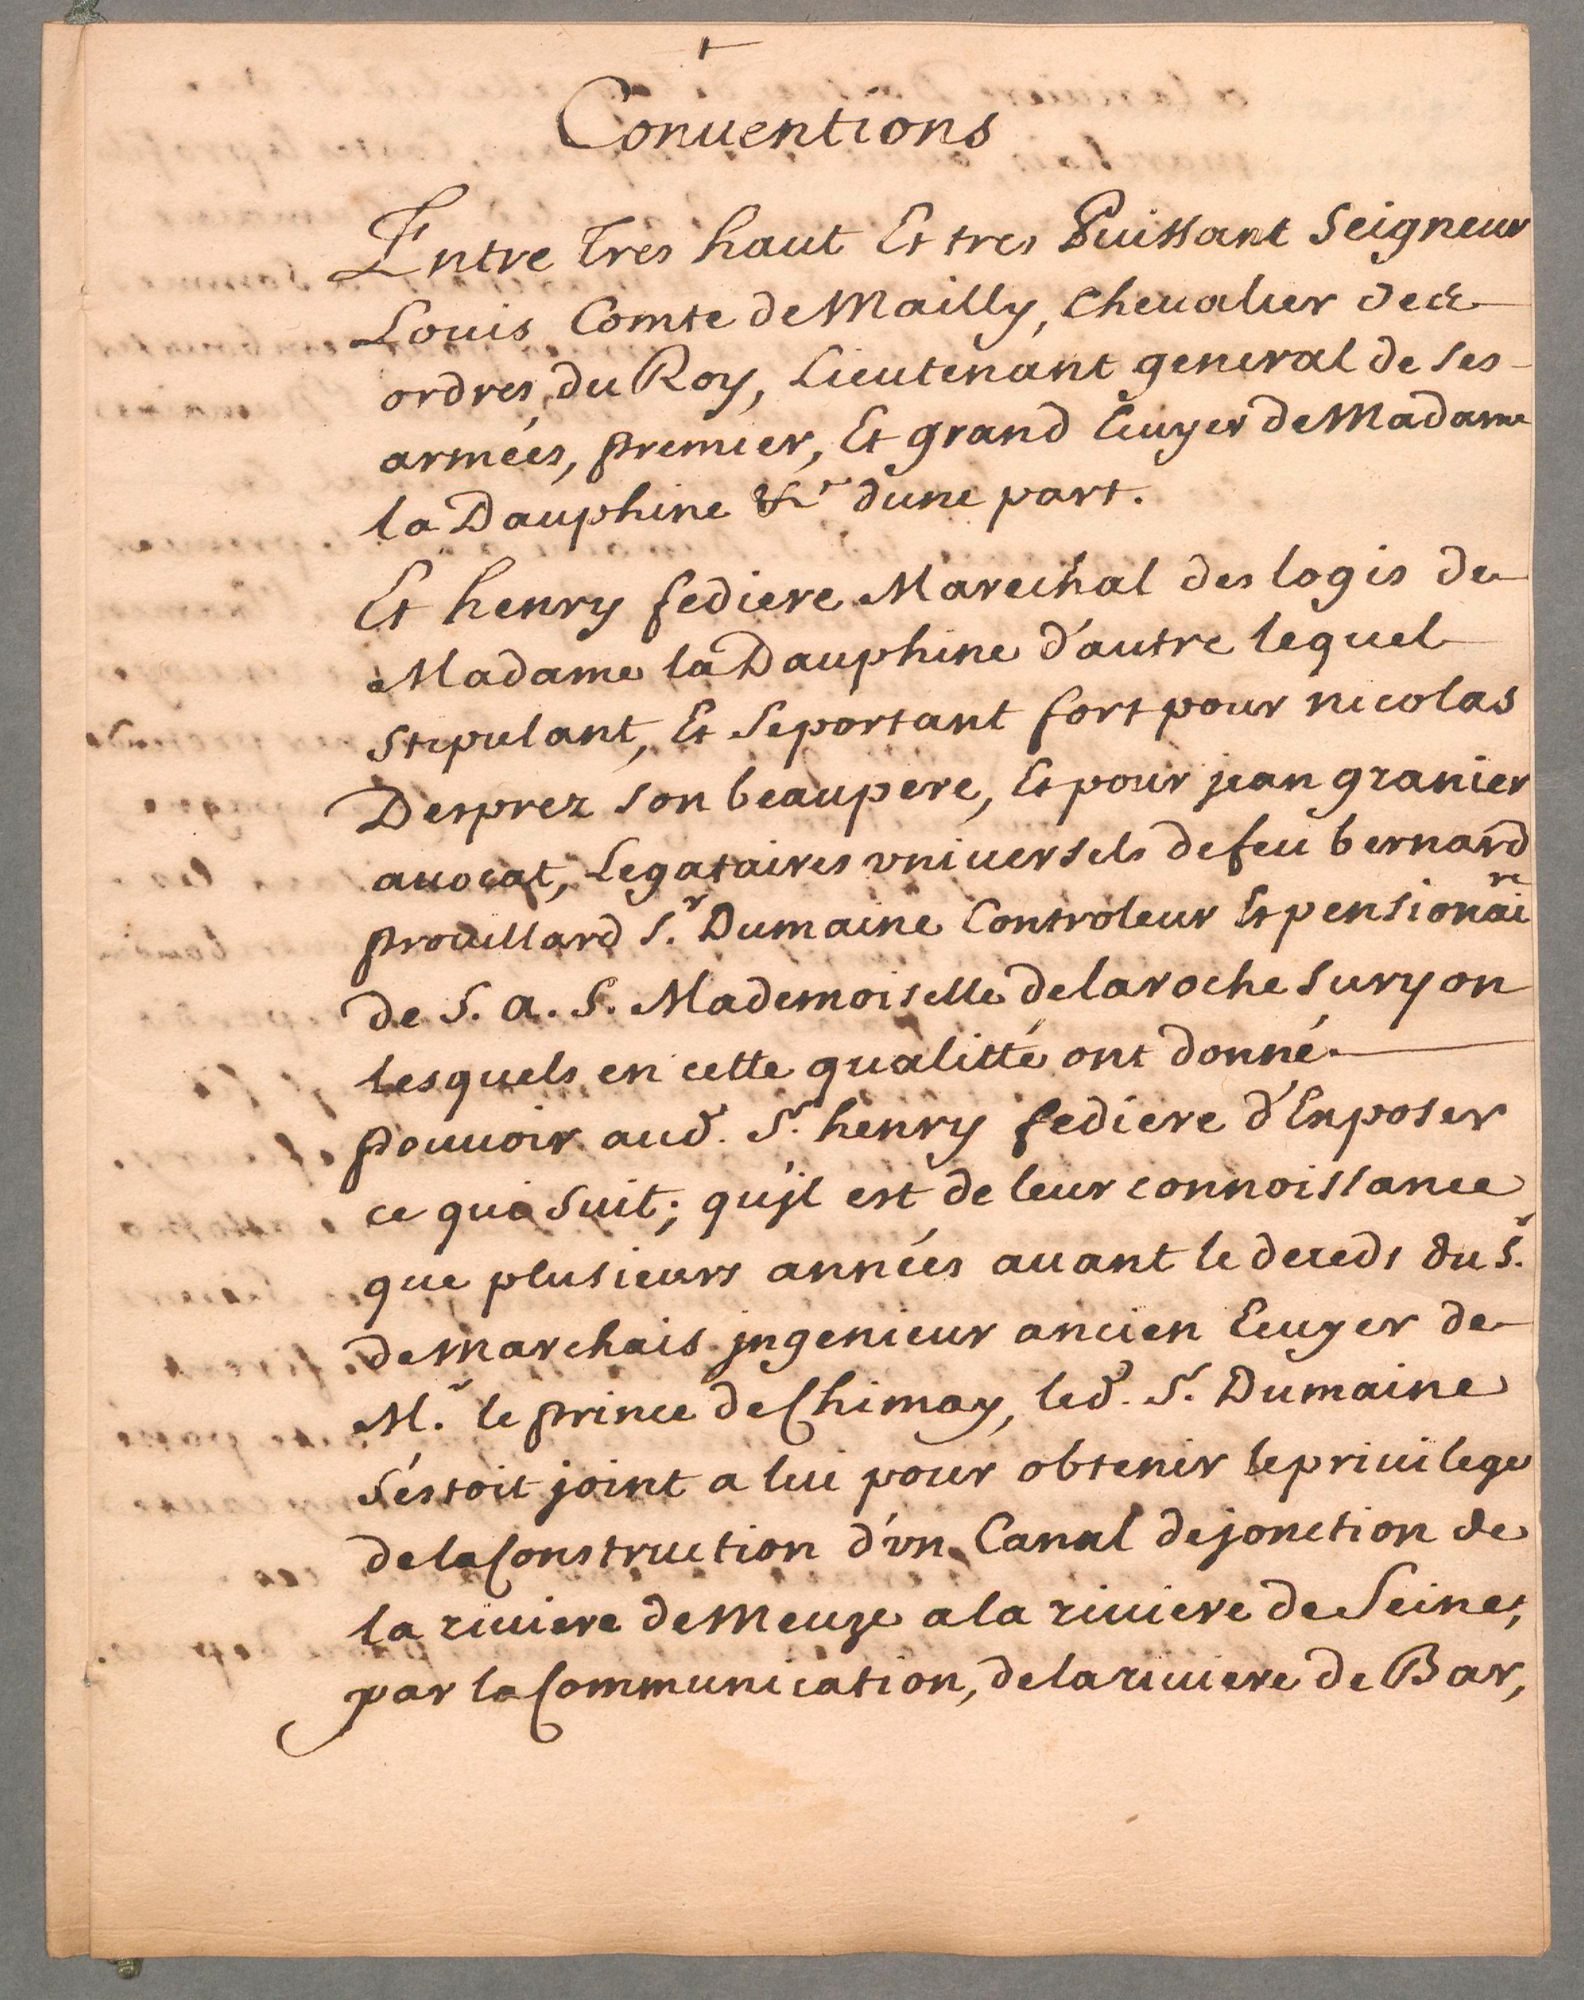 Conuentions
Entre tres haut Et tres Puissant Seigneur
Louis Comte de Mailly, Cheualier des
ordres du Roy, Lieutenant general de ses
armées, premier, Et grand Ecuyer de Madame
la Dauphine &c dune part.
Et henry fediere Marechal des logis de
Madame la Dauphine d'autre lequel
stipulant, Et se portant fort pour nicolas
Desprez son beaupere, Et pour jean granier
auocat, Legataires vniuersels de feu bernard
prouillard Sr. Dumaine Controleur Et pensionaire
de S. a. S. Mademoiselle de la roche sur yon
lesquels en cette qualitté ont donné
pouuoir aud. Sr. henry fediere d'Exposer
ce qui suit; qu'jl est de leur connoissance
que plusieurs années auant le deceds du Sr.
de marchais jngenieur ancien Ecuyer de
Mr. le prince de Chimay, led. Sr. Dumaine
s'éstoit joint a lui pour obtenir le priuilege
de la Construction d'vn Canal de jonction de
la riuiere de Meuze a la riuiere de Seine,
par la Communication, de la riuiere de Bar,